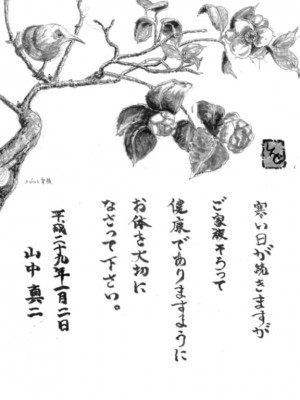 寒い日が続きますが
ご家族そろって
健康でありますように
お体を大切に
なさって下さい。
平成二十九年一月二日
山中真二